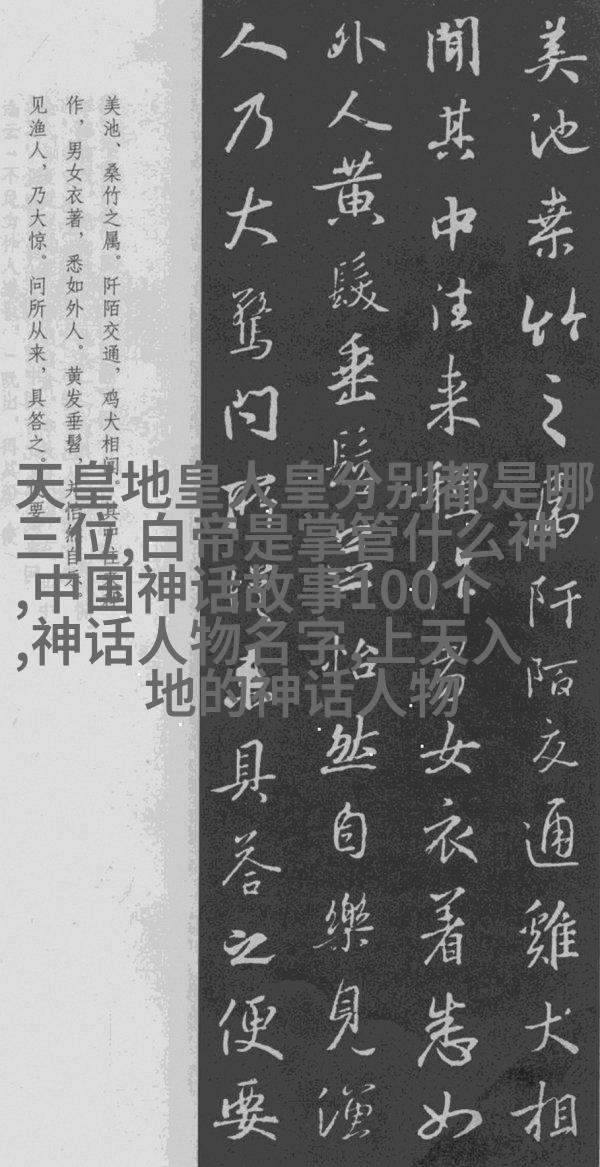 美池桒竹之属阡陌交通雞犬相
聞其中往来種作男女衣着悉如
外人黃髮垂髫並怡然自樂見漁
人乃大驚問所從来具答之便要
美池、桑竹之属。阡陌交通，鸡犬相闻。其中往来
作，男女衣著，悉如外人。黄发垂髫，并怡然自乐。
见渔人，乃大惊。问所从来，具答之。便要
天皇地皇人皇分别都是哪
三位,白帝是掌管什么神
,中国神话故事100个
,神话人物名字,上天入
地的神话人物